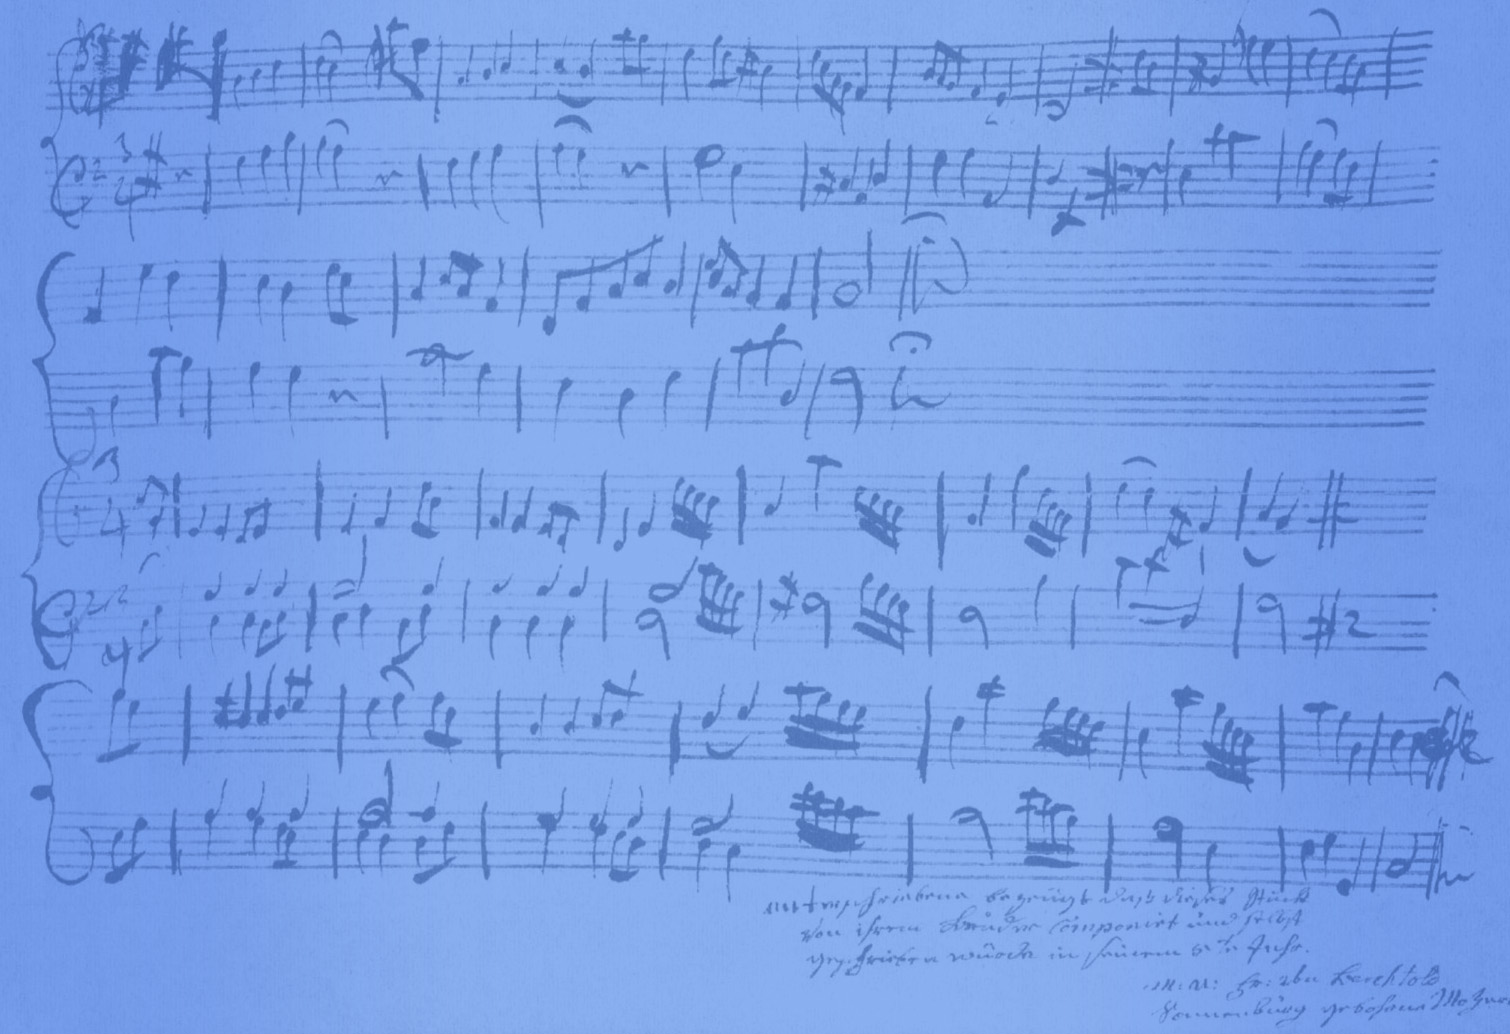 unterschriebene bezeugt daß dieses Stück
von ihrem Bruder Componirt und selbst
geschrieben wurde in seinem 5te Jahr.
M: A: Fr: von Berchtold
Sonnenburg gebohrne Mozart